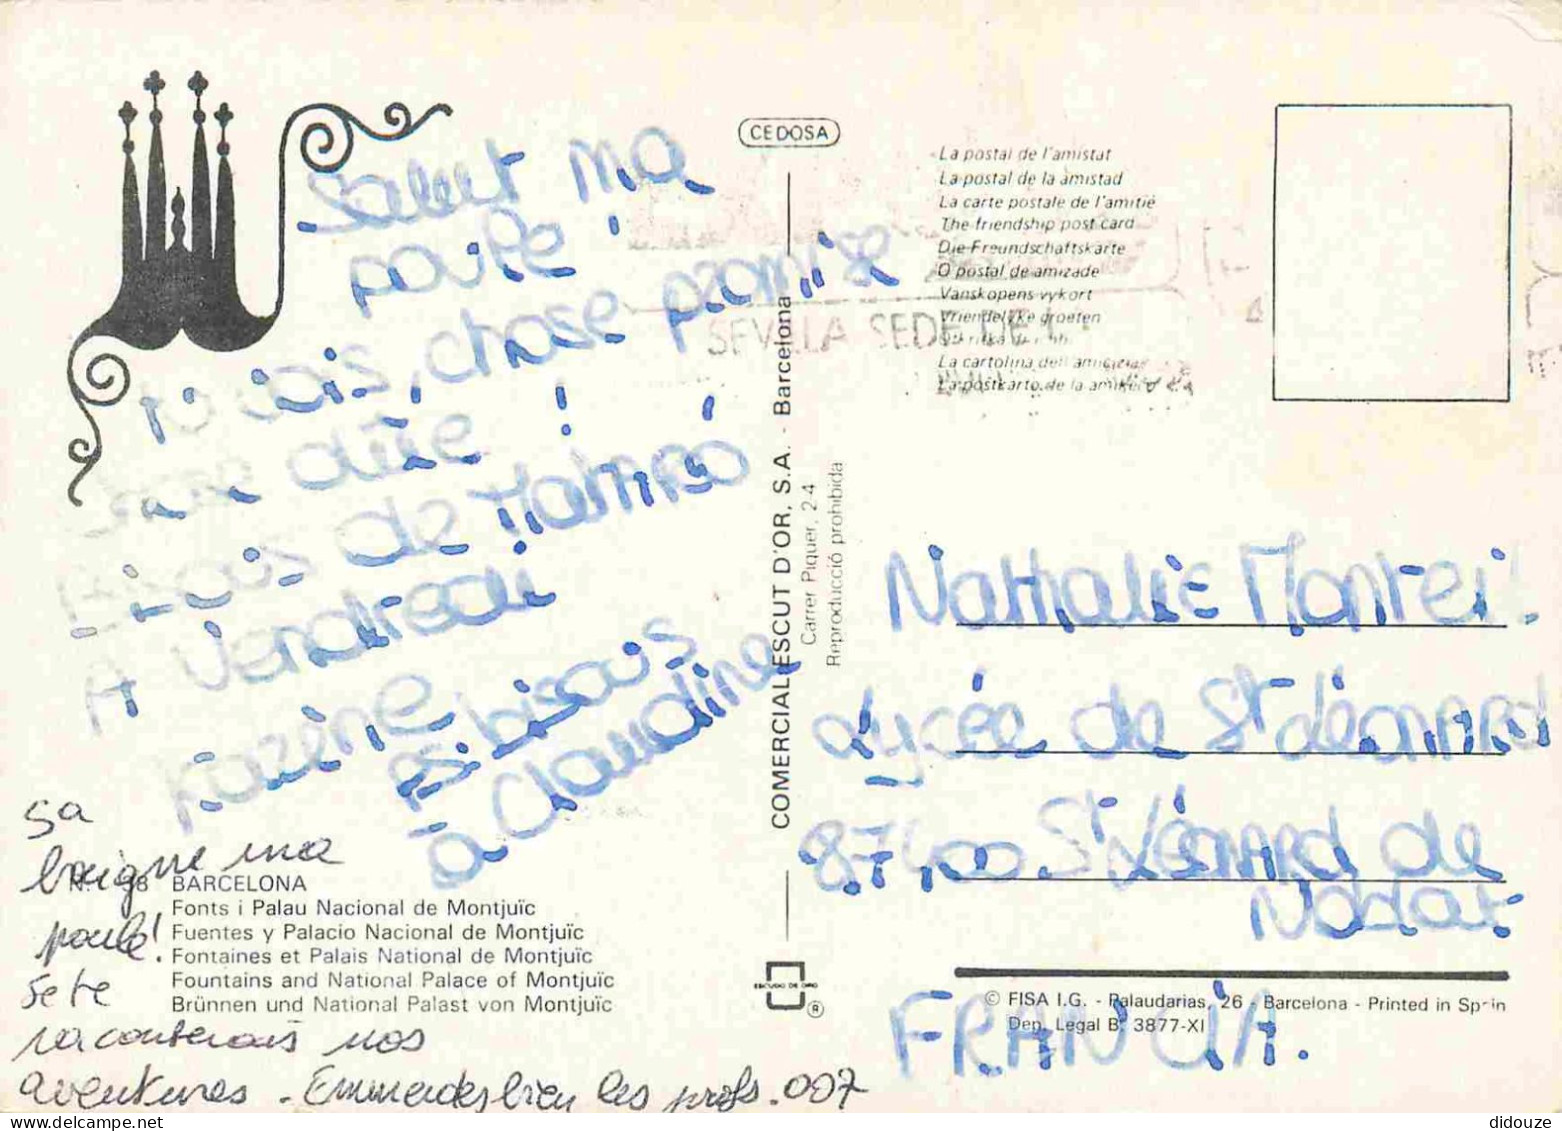 CEDOSA
La postal de l'amistat
La postal de la amistad
La carte postale de l'amitié
The friendship post card
Die Freundschaftskarte
O postal de amizade
Vanskopens vykort
Vriendelyke groeten
La cartolina dell'amicizia
La postkarto de la
SEVILLA SEDE DE
Salut ma
poule !
tu vois, chose promise
chose dûe !
Bisous de Mataró
A Vendredi
Kazène
PS: bisous
à Claudine
sa
baigne ma
poule!
Je te
raconterais nos
aventures. Emmerdes bien les profs. 007
BARCELONA
Fonts i Palau Nacional de Montjuïc
Fuentes y Palacio Nacional de Montjuïc
Fontaines et Palais National de Montjuïc
Fountains and National Palace of Montjuïc
Brünnen und National Palast von Montjuïc
COMERCIAL ESCUT D'OR, S.A. - Barcelona
Carrer Piquer, 2-4
Reproducció prohibida
ESCUDO DE ORO
®
Nathalie Monteil
Lycée de St Léonard
87400 St Léonard de
Noblat
FRANCIA.
© FISA I.G. - Palaudarias, 26 - Barcelona - Printed in Spain
Dep. Legal B. 3877-XI
didouze